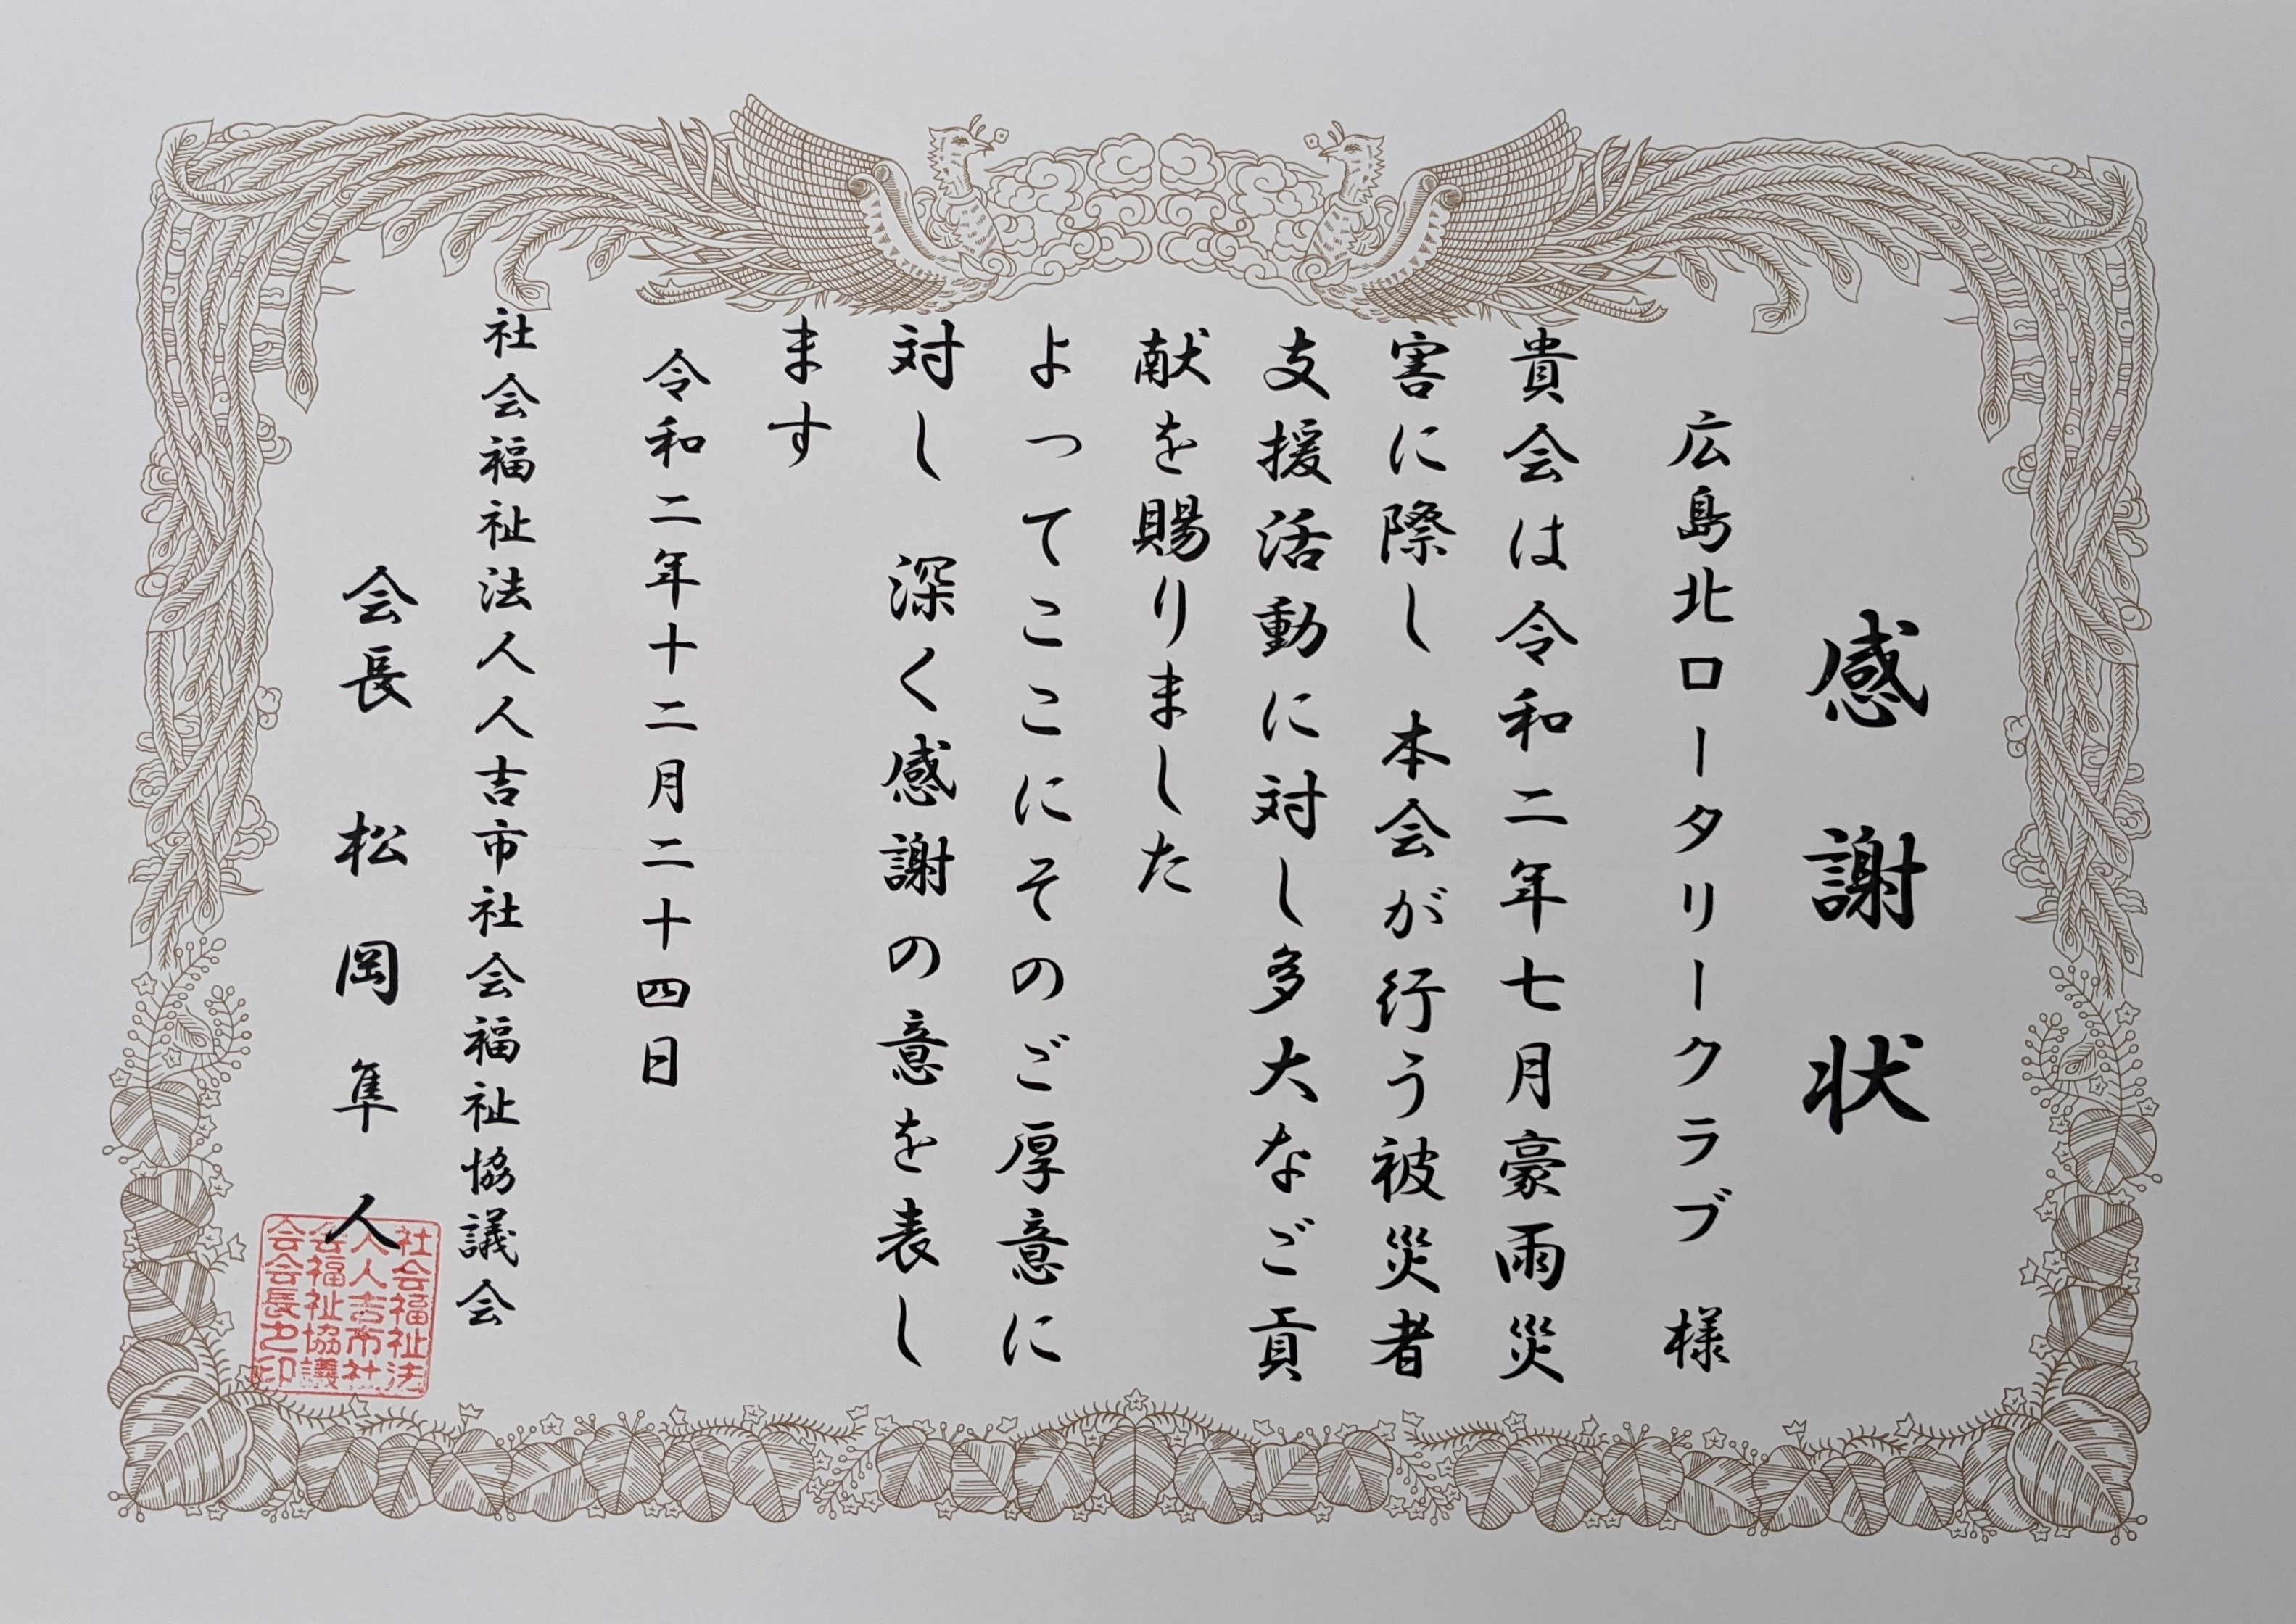 感謝状
広島北ロータリークラブ 様
貴会は令和二年七月豪雨災
害に際し 本会が行う被災者
支援活動に対し多大なご貢
献を賜りました
よってここにそのご厚意に
対し 深く感謝の意を表し
ます
令和二年十二月二十四日
社会福祉法人人吉市社会福祉協議会
会長 松岡隼人
社会福祉法
人人吉市社
会福祉協議
会会長之印